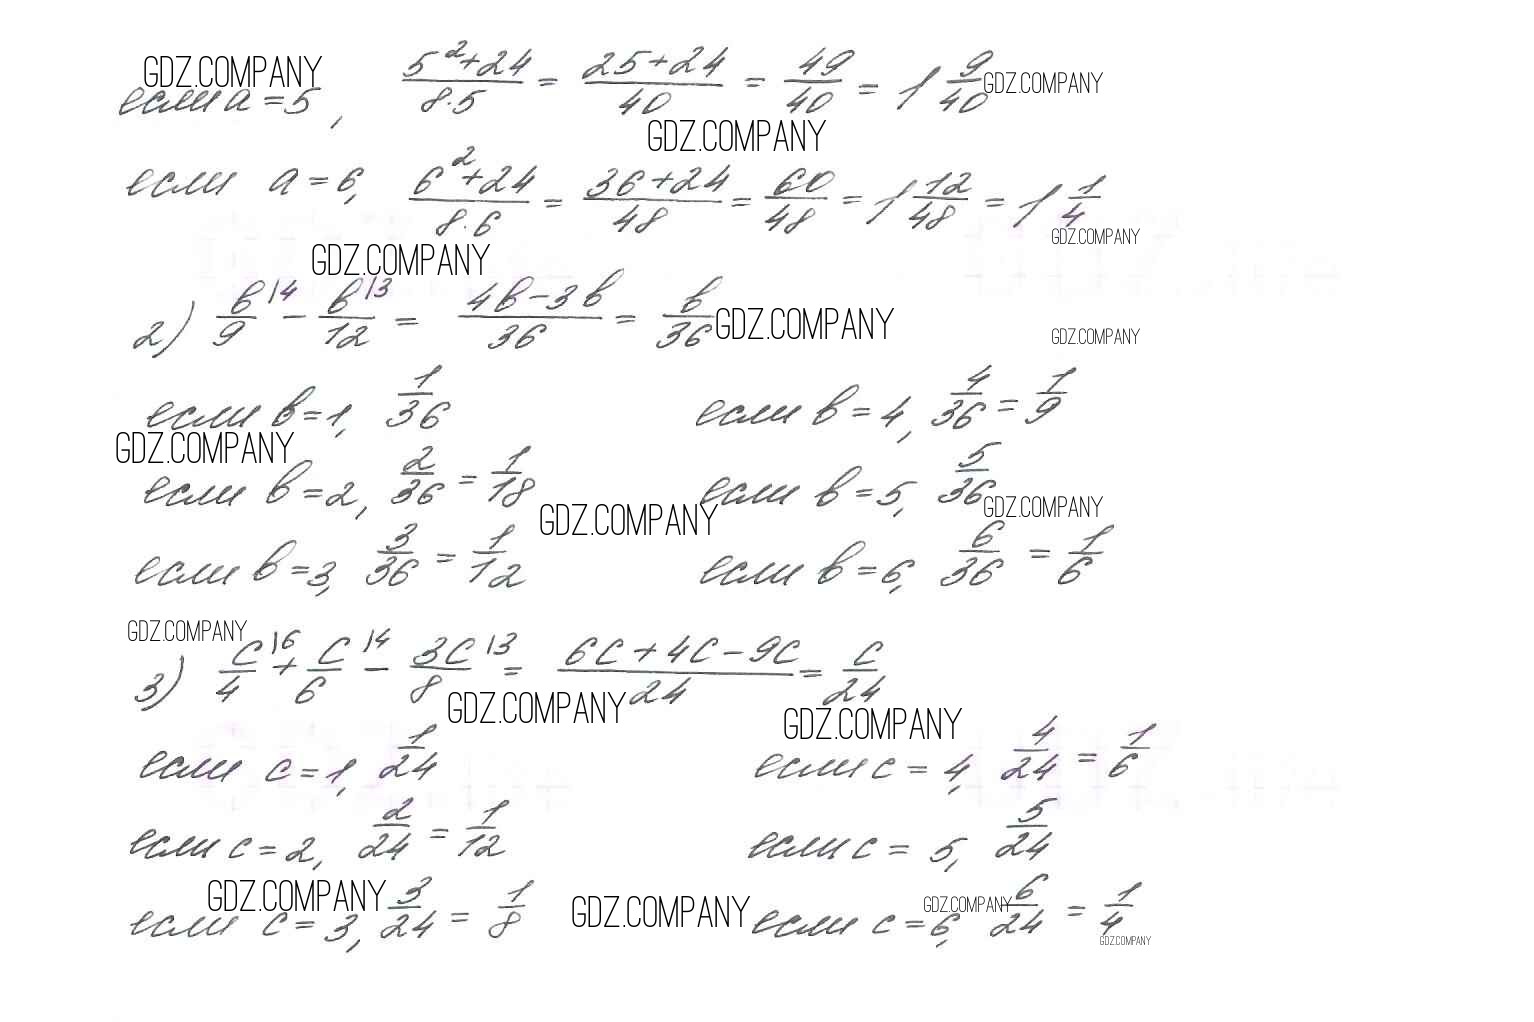 GDZ.COMPANY
если a = 5, (5² + 24)/(8·5) = (25 + 24)/40 = 49/40 = 1 9/40
GDZ.COMPANY
GDZ.COMPANY
если a = 6, (6² + 24)/(8·6) = (36 + 24)/48 = 60/48 = 1 12/48 = 1 1/4
GDZ.COMPANY
GDZ.COMPANY
2) b/9 |4 − b/12 |3 = (4b − 3b)/36 = b/36
GDZ.COMPANY
GDZ.COMPANY
если b = 1, 1/36
если b = 4, 4/36 = 1/9
GDZ.COMPANY
если b = 2, 2/36 = 1/18
если b = 5, 5/36
GDZ.COMPANY
GDZ.COMPANY
если b = 3, 3/36 = 1/12
если b = 6, 6/36 = 1/6
GDZ.COMPANY
3) c/4 |6 + c/6 |4 − 3c/8 |3 = (6c + 4c − 9c)/24 = c/24
GDZ.COMPANY
GDZ.COMPANY
если c = 1, 1/24
если c = 4, 4/24 = 1/6
если c = 2, 2/24 = 1/12
если c = 5, 5/24
GDZ.COMPANY
если c = 3, 3/24 = 1/8
GDZ.COMPANY
GDZ.COMPANY
если c = 6, 6/24 = 1/4
GDZ.COMPANY